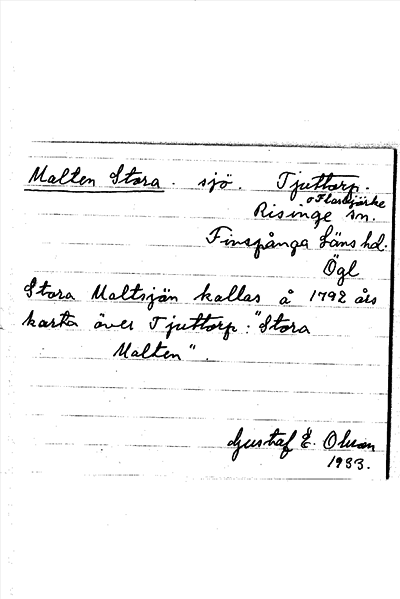 Malten Stora. sjö. Tjuttorp.
o Flasbjörke
Risinge sn.
Finspånga Läns hd.
Ögl
Stora Maltsjön kallas å 1792 års
karta över Tjuttorp: "Stora
Malten".
Gustaf E. Olsson
1933.